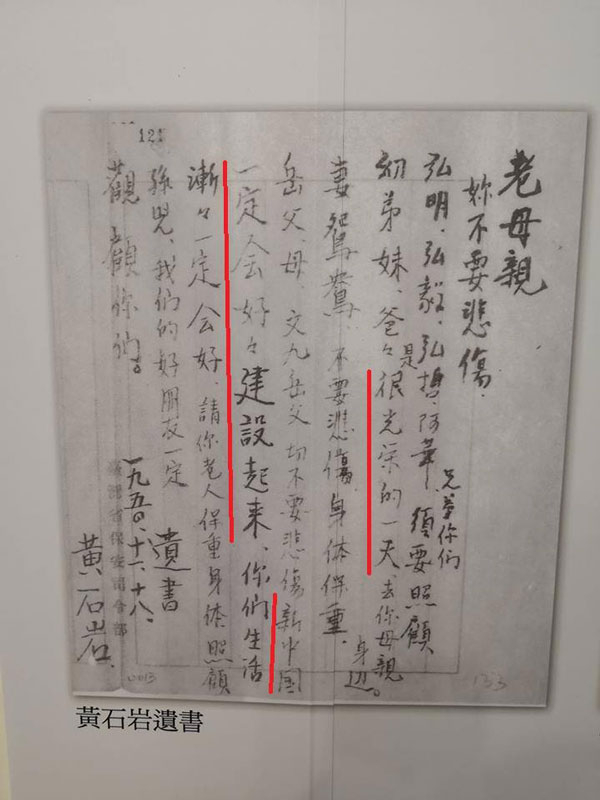 老母親
妳不要悲傷.
弘明、弘毅、弘哲、阿華、兄弟你們須要照顧
幼弟妹、爸々是很光栄的一天、去你母親身辺。
妻鴛鴦、不要悲傷身体保重、
岳父、母、文九岳父切不要悲傷新中国
一定会好々建設起来、你們生活
漸々一定会好、請你老人保重身体照顧
孫児、我们的好朋友一定
觀顧你们。
遺書
一九五〇、十一、十八、
黃石岩.
省保安司令部
121
黃石岩遺書